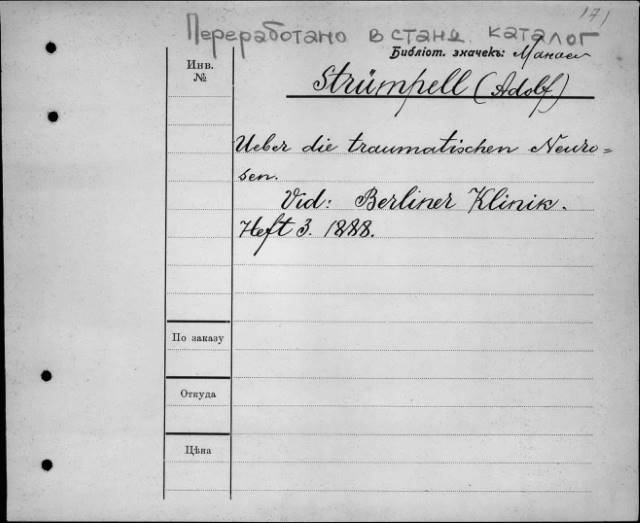 171
Переработано в станд. каталог
Библіот. значекъ:
Инв. №
Strümpell (Adolf.)
Ueber die traumatischen Neuro=
sen.
Vid: Berliner Klinik.
Heft 3. 1888.
По заказу
Откуда
Цѣна